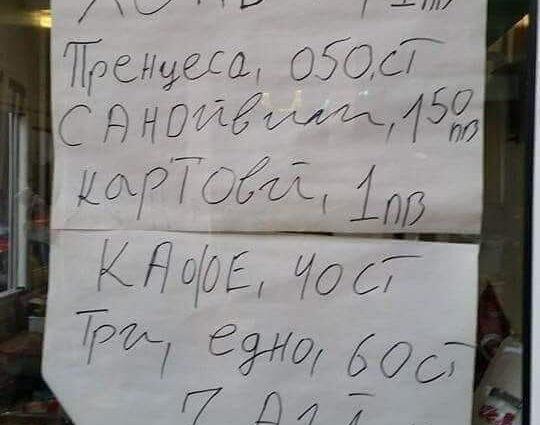 1лв
Пренцеса, 050,ст
САНОйвичи, 150 лв
картови, 1лв
КАфЕ, 40 ст
Три, едно, 60 ст